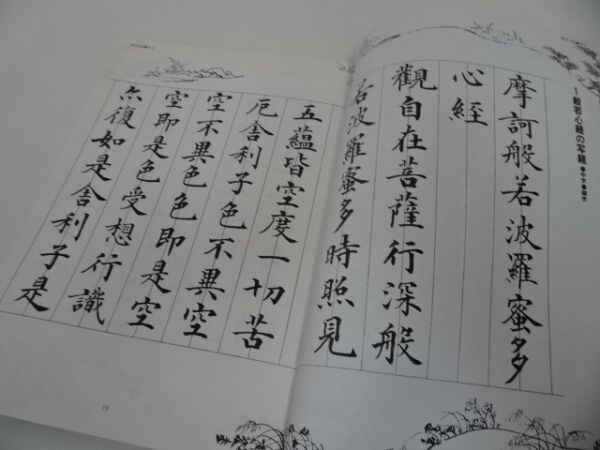 1般若心経の写経
摩訶般若波羅蜜多
心経
観自在菩薩行深般
若波羅蜜多時照見
五蘊皆空度一切苦
厄舎利子色不異空
空不異色色即是空
空即是色受想行識
亦復如是舎利子是
19